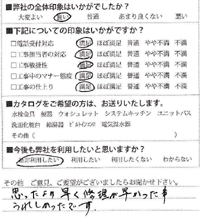 ■弊社の全体印象はいかがでしたか？
大変よい 良い 普通 あまり良くない 悪い
■下記についての印象はいかがですか
□電話受付対応 満足 ほぼ満足 普通 やや不満 不満
□工事担当者の対応 満足 ほぼ満足 普通 やや不満 不満
□工事敏捷性 満足 ほぼ満足 普通 やや不満 不満
□工事中のマナー態度 満足 ほぼ満足 普通 やや不満 不満
□工事の仕上り 満足 ほぼ満足 普通 やや不満 不満
■カタログをご希望の方は、お送りいたします。
水栓金具 便器 ウォシュレット システムキッチン ユニットバス
洗面化粧台 給湯器 ビルトインコンロ 電気温水器
その他（ ）
■今後も弊社を利用したいと思いますか？
ぜひ利用したい 利用したい 利用したくない わからない
その他 ご意見、ご要望がございましたらお聞かせ下さい。
思ったより早く修理が早かった事
うれしかったです。